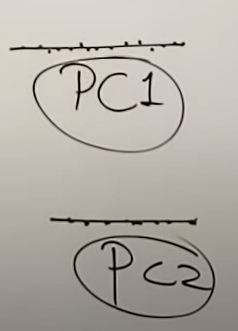 PC1
PC2